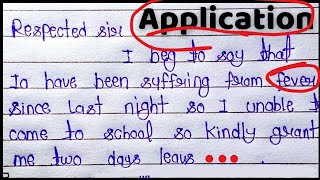 Application
Respected sir
I beg to say that
Ia have been suffering from fever
since last night so I unable t
come to school so kindly grant
me two days leavs